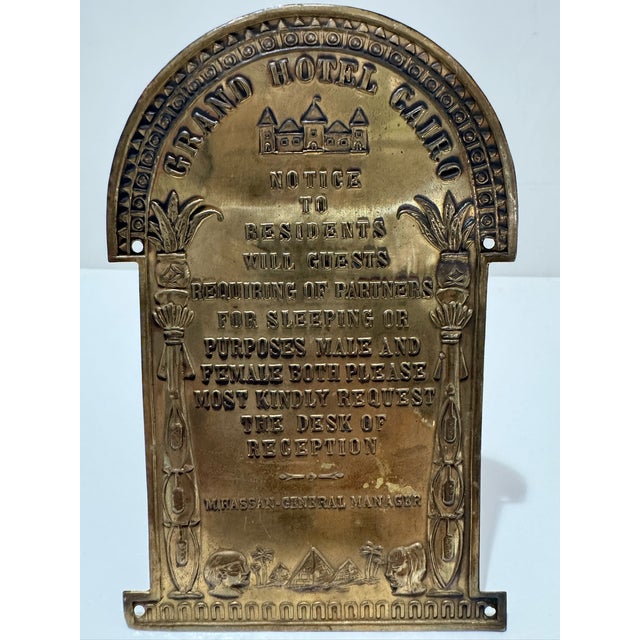 GRAND HOTEL CAIRO
NOTICE
TO
RESIDENTS
WILL GUESTS
REQUIRING OF PARTNERS
FOR SLEEPING OR
PURPOSES MALE AND
FEMALE BOTH PLEASE
MOST KINDLY REQUEST
THE DESK OF
RECEPTION
M.HASSAN-GENERAL MANAGER